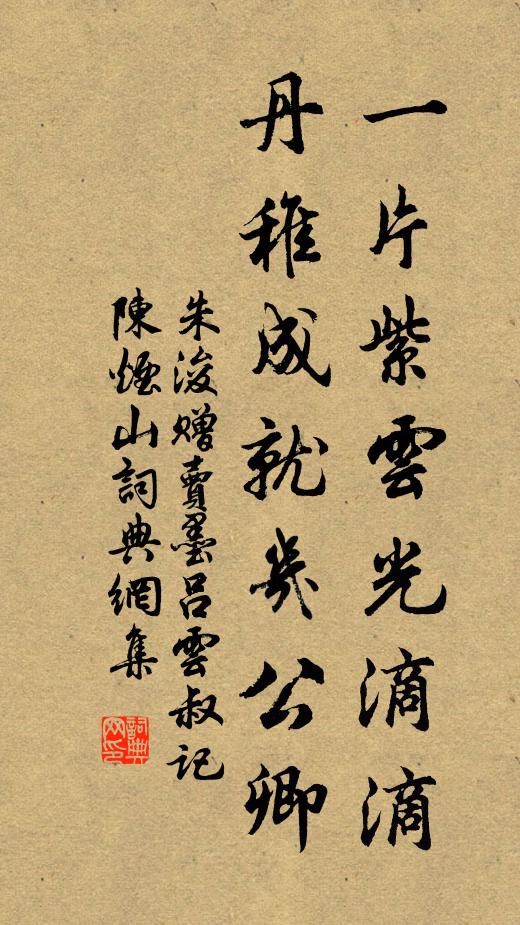 一片紫雲光滴滴
丹稚成就幾公卿
朱浚贈賣墨呂雲叔記
陳煙山詞典網集
詞典網印